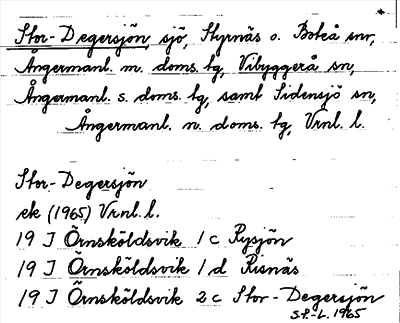 Stor-Degersjön, sjö, Styrnäs o. Boteå snr,
Ångermanl. m. doms. tg, Vibyggerå sn,
Ångermanl. s. doms. tg, samt Sidensjö sn,
Ångermanl. n. doms. tg, Vrnl. l.
Stor-Degersjön
ek (1965) Vrnl. l.
19 J Örnsköldsvik 1 c Rysjön
19 J Örnsköldsvik 1 d Risnäs
19 J Örnsköldsvik 2 c Stor-Degersjön
S.F.-L. 1965